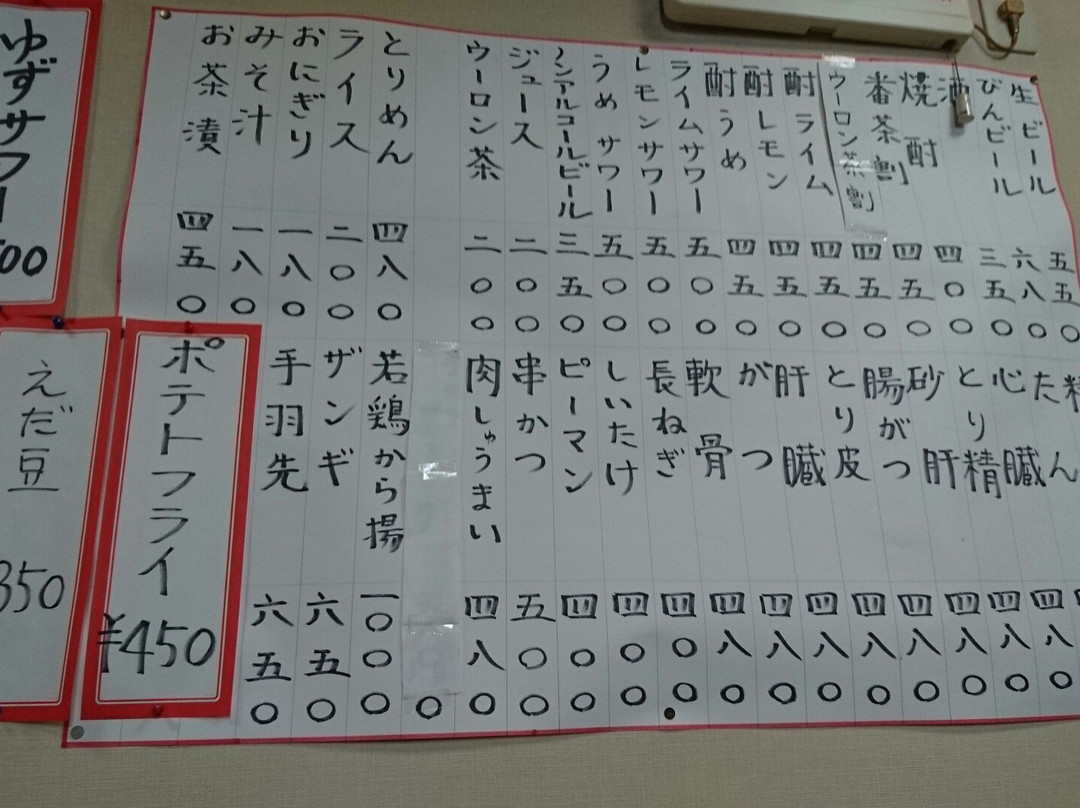 生ビール 五五〇
びんビール 六八〇
酒 三五〇
焼酎 四〇〇
番茶割 四五〇
ウーロン茶割 四五〇
酎ライム 四五〇
酎レモン 四五〇
酎うめ 四五〇
ライムサワー 五〇〇
レモンサワー 五〇〇
うめサワー 五〇〇
ノンアルコールビール 三五〇
ジュース 二〇〇
ウーロン茶 二〇〇
とりめん 四八〇
ライス 二〇〇
おにぎり 一八〇
みそ汁 一八〇
お茶漬 四五〇
たん
心臓 四八〇
とり精 四八〇
砂肝 四八〇
腸がつ 四八〇
とり皮 四八〇
肝臓 四八〇
がつ 四八〇
軟骨 四八〇
長ねぎ 四〇〇
しいたけ 四〇〇
ピーマン 四〇〇
串かつ 五〇〇
肉しゅうまい 四八〇
〇
若鶏から揚 一〇〇〇
ザンギ 六五〇
手羽先 六五〇
ポテトフライ
¥450
ゆずサワー
えだ豆
350